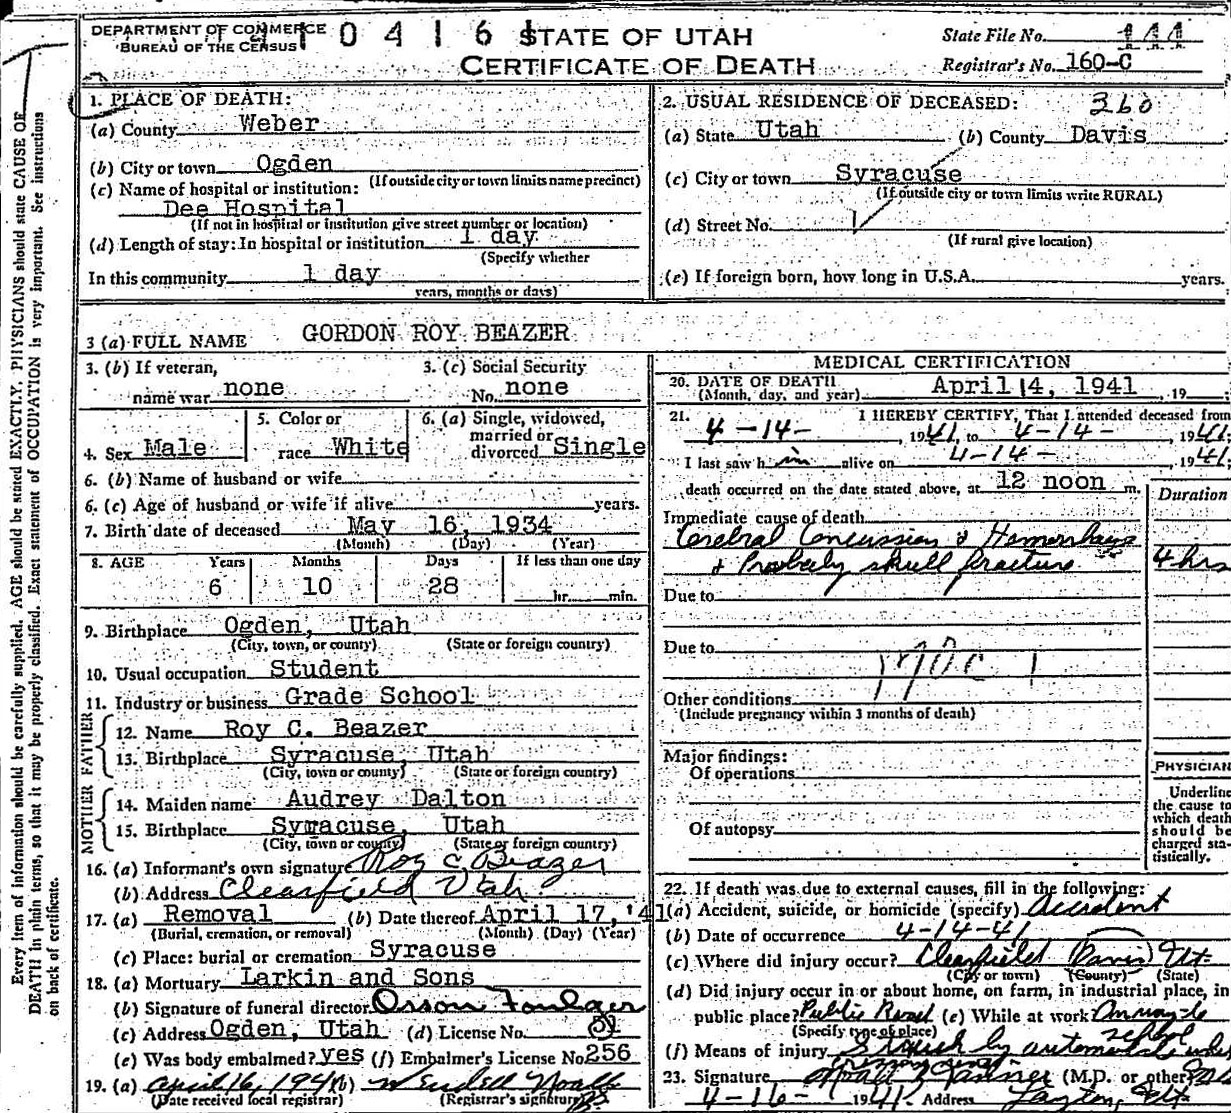 Every item of information should be carefully supplied. AGE should be stated EXACTLY. PHYSICIANS should state CAUSE OF
DEATH in plain terms, so that it may be properly classified. Exact statement of OCCUPATION is very important. See instructions
on back of certificate.
DEPARTMENT OF COMMERCE
BUREAU OF THE CENSUS
0 4 1 6
STATE OF UTAH
CERTIFICATE OF DEATH
State File No.
Registrar's No. 160-C
1. PLACE OF DEATH:
(a) County Weber
(b) City or town Ogden
(If outside city or town limits name precinct)
(c) Name of hospital or institution:
Dee Hospital
(If not in hospital or institution give street number or location)
(d) Length of stay: In hospital or institution 1 day
(Specify whether
In this community 1 day
years, months or days)
2. USUAL RESIDENCE OF DECEASED: 360
(a) State Utah (b) County Davis
(c) City or town Syracuse
(If outside city or town limits write RURAL)
(d) Street No.
(If rural give location)
(e) If foreign born, how long in U.S.A. years.
3 (a) FULL NAME GORDON ROY BEAZER
3. (b) If veteran,
name war none
3. (c) Social Security
No. none
4. Sex Male
5. Color or
race White
6. (a) Single, widowed,
married or
divorced Single
6. (b) Name of husband or wife
6. (c) Age of husband or wife if alive years.
7. Birth date of deceased May 16, 1934
(Month) (Day) (Year)
8. AGE Years Months Days If less than one day
6 10 28 hr. min.
9. Birthplace Ogden, Utah
(City, town, or county) (State or foreign country)
10. Usual occupation Student
11. Industry or business Grade School
FATHER
12. Name Roy C. Beazer
13. Birthplace Syracuse, Utah
(City, town or county) (State or foreign country)
MOTHER
14. Maiden name Audrey Dalton
15. Birthplace Syracuse, Utah
(City, town or county) (State or foreign country)
16. (a) Informant's own signature Roy C. Beazer
(b) Address Clearfield Utah
17. (a) Removal (b) Date thereof April 17, '41
(Burial, cremation, or removal) (Month) (Day) (Year)
(c) Place: burial or cremation Syracuse
18. (a) Mortuary Larkin and Sons
(b) Signature of funeral director Orson Foulger
(c) Address Ogden, Utah (d) License No.
(e) Was body embalmed? yes (f) Embalmer's License No. 256
19. (a) April 16, 1941 (b) Wendell Noall
(Date received local registrar) (Registrar's signature)
MEDICAL CERTIFICATION
20. DATE OF DEATH April 14, 1941, 19
(Month, day, and year)
21. I HEREBY CERTIFY, That I attended deceased from
4-14-, 1941, to 4-14-, 1941.
I last saw him alive on 4-14-, 1941.
death occurred on the date stated above, at 12 noon m.
Duration
Immediate cause of death
Cerebral Concussion & Hemorrhage
& Probably skull fracture 4 hrs
Due to
Due to
170c
Other conditions
(Include pregnancy within 3 months of death)
Major findings:
Of operations
Of autopsy
PHYSICIAN
Underline
the cause to
which death
should be
charged sta-
tistically.
22. If death was due to external causes, fill in the following:
(a) Accident, suicide, or homicide (specify) Accident
(b) Date of occurrence 4-14-41
(c) Where did injury occur? Clearfield Davis Ut.
(City or town) (County) (State)
(d) Did injury occur in or about home, on farm, in industrial place, in
public place? Public Road (e) While at work On way to
(Specify type of place) school
(f) Means of injury Struck by automobile
23. Signature Tanner (M.D. or other)
4-16- 1941 Address Layton, Ut.